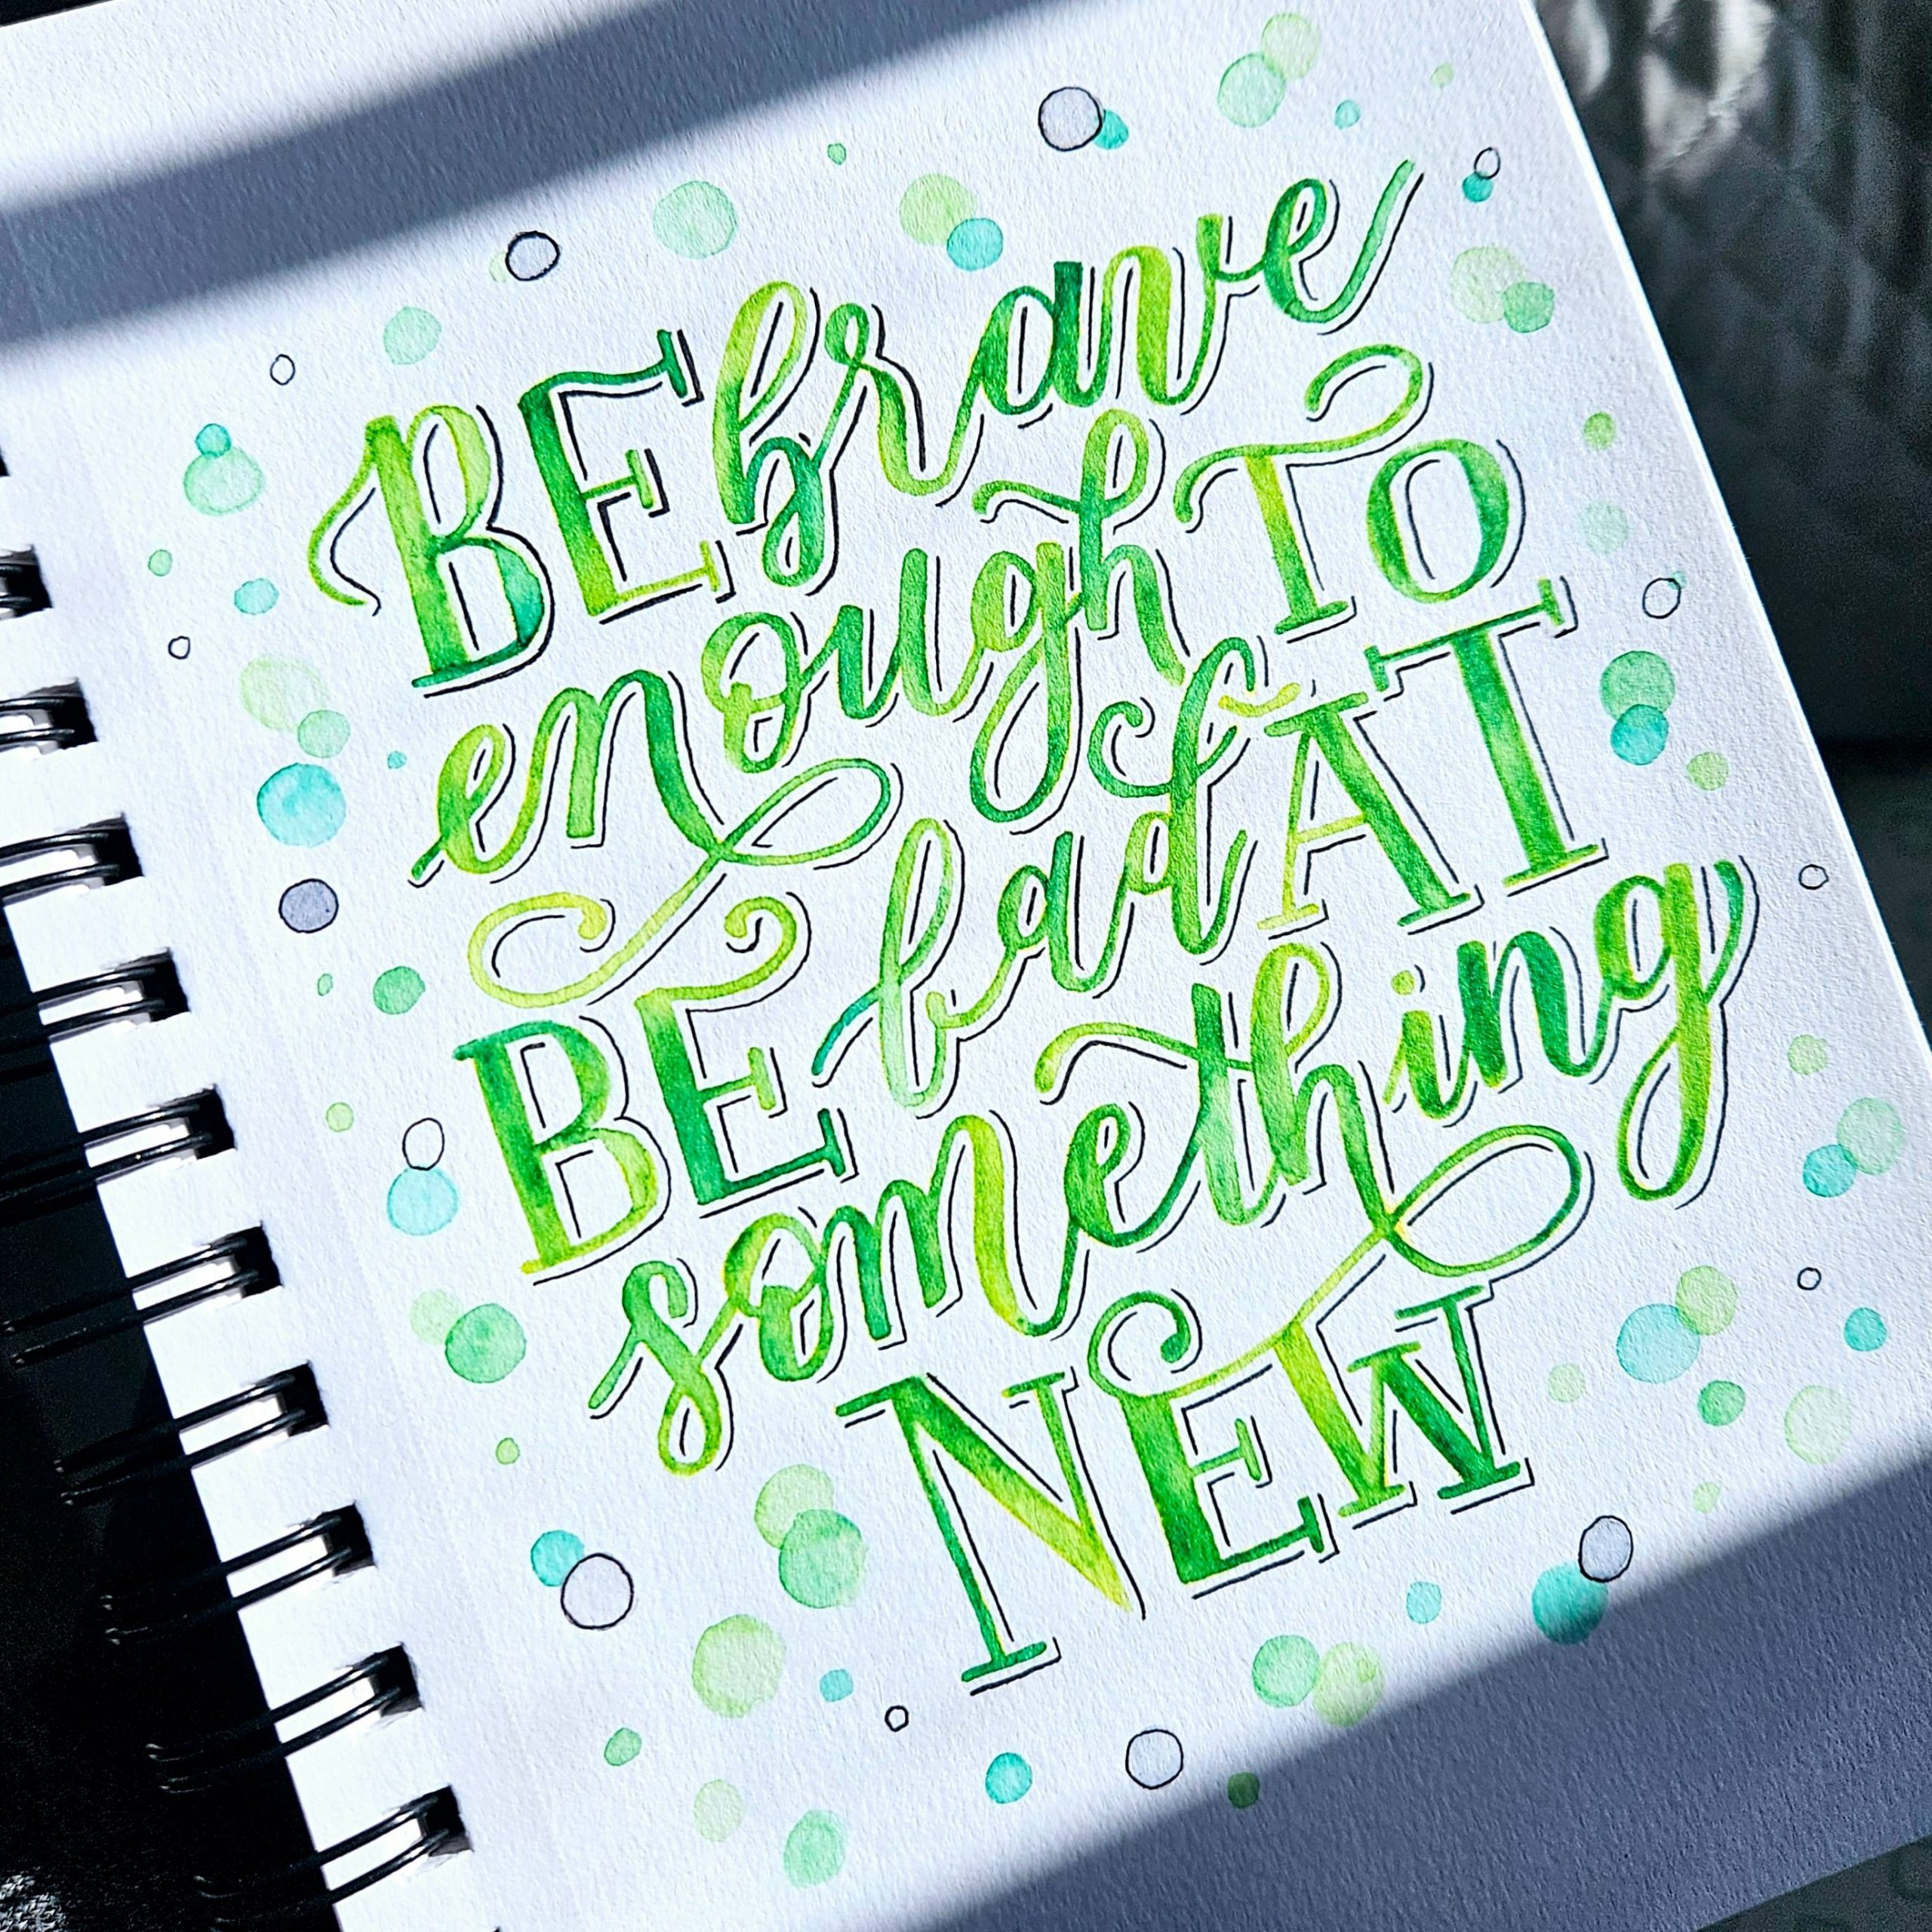 BE brave
enough TO
BE bad AT
something
NEW